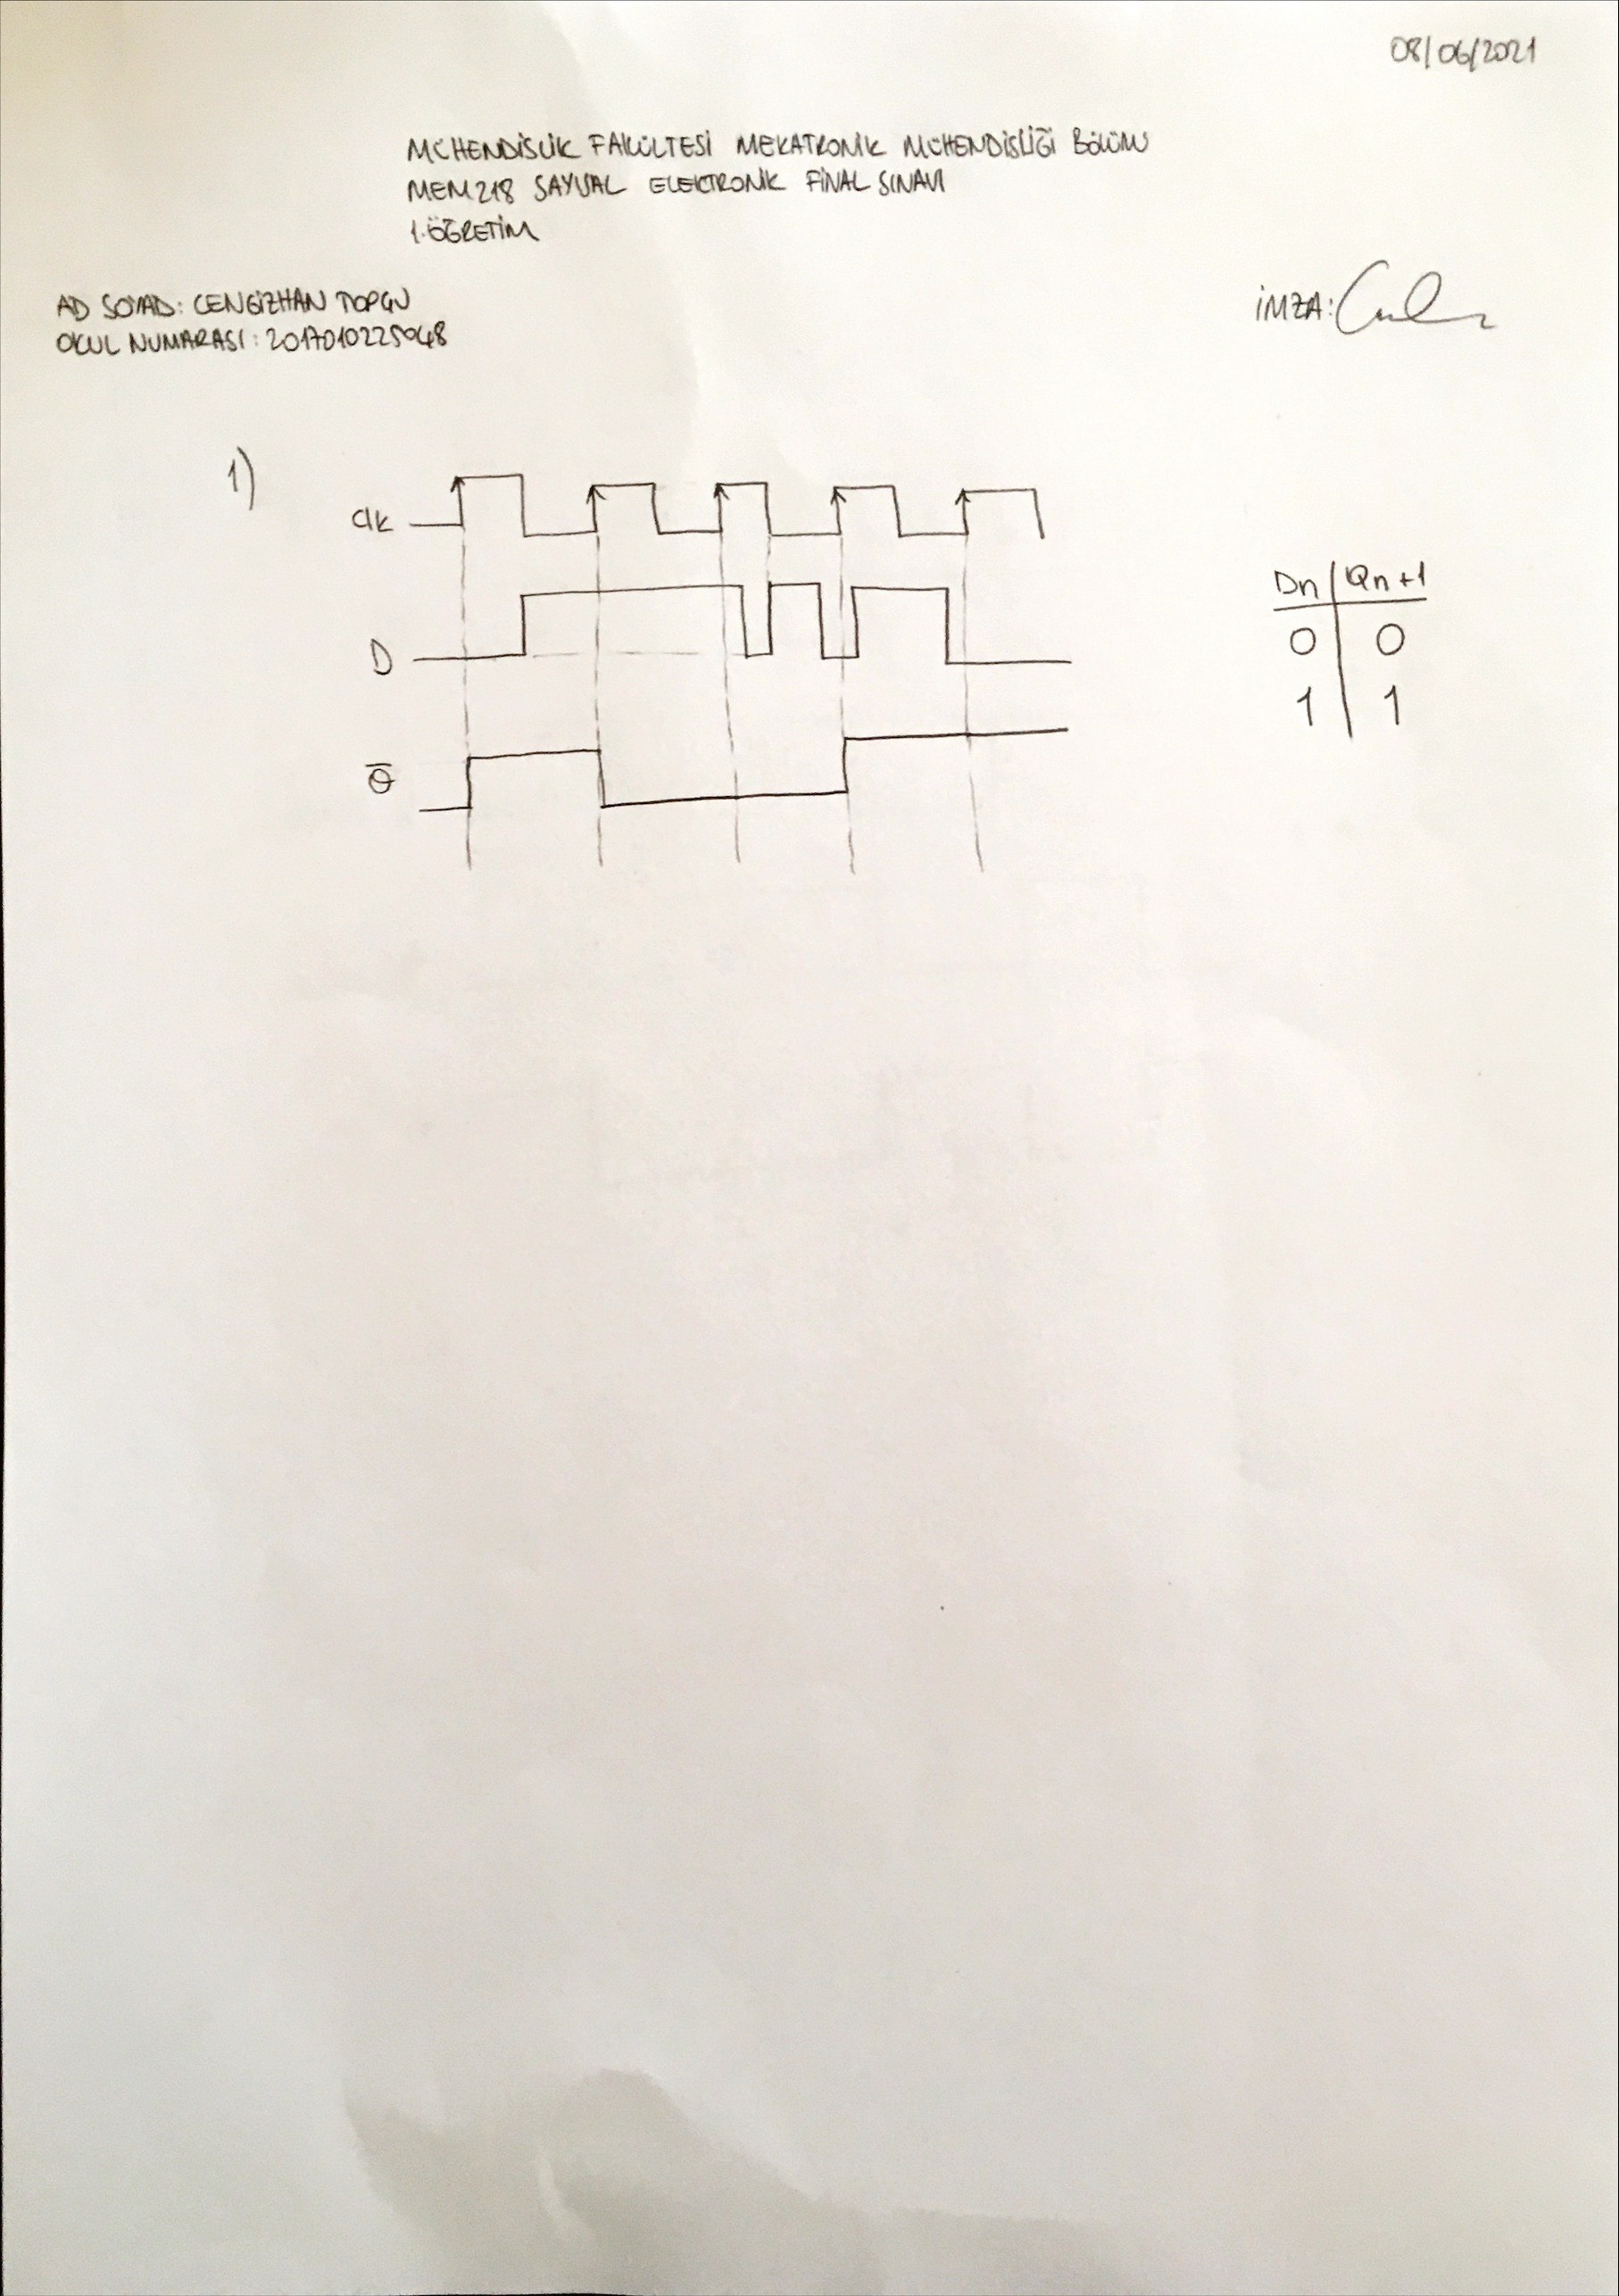 08/06/2021
MÜHENDİSLİK FAKÜLTESİ MEKATRONİK MÜHENDİSLİĞİ BÖLÜMÜ
MEM218 SAYISAL ELEKTRONİK FİNAL SINAVI
1.ÖĞRETİM
AD SOYAD: CENGİZHAN TOPÇU
OKUL NUMARASI: 2017010225048
İMZA:
1)
Clk
D
Q̅
Dn Qn+1
0 0
1 1